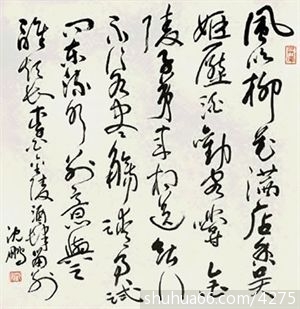 風吹柳花滿店香吴
姬壓酒勸客嘗金
陵子弟来相送欲行
不行各盡觴請君試
问東流水别意與之
誰短長李白金陵酒肆留别
沈鹏
shuhua66.com/4275